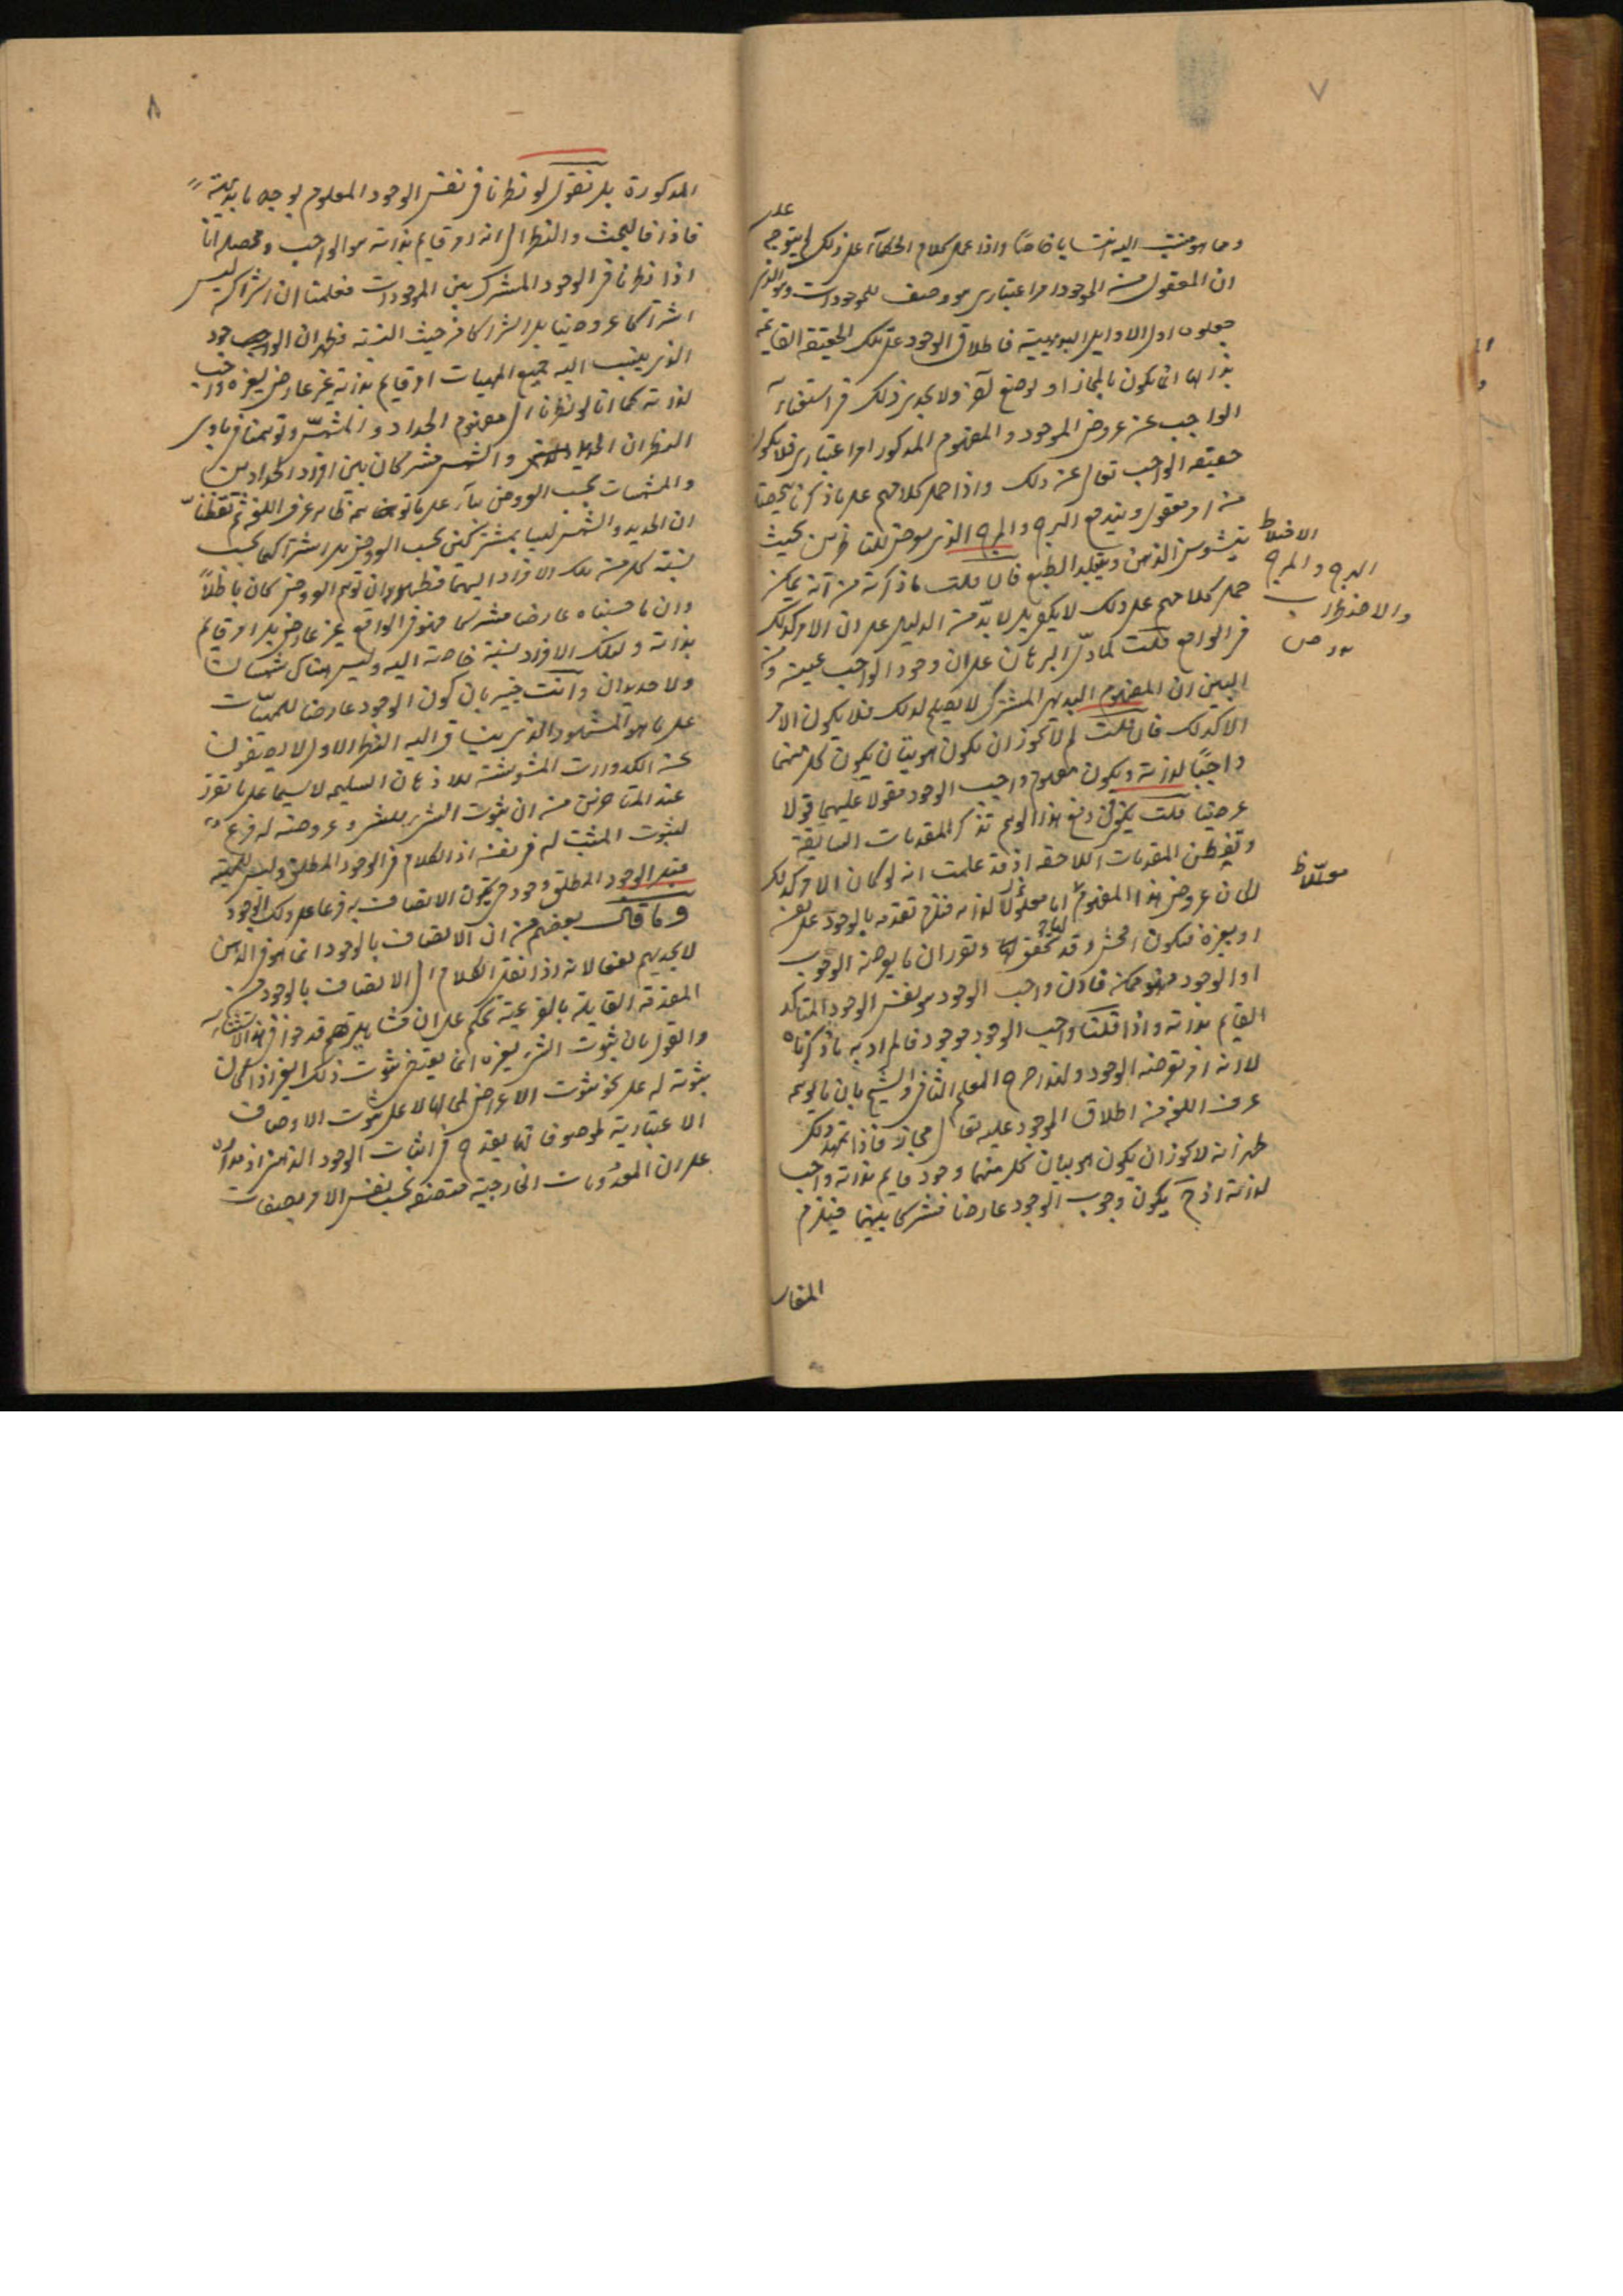 ٧
وما هو منتسب اليه انتسابا خاصا واذا حمل كلام الحكماء على ذلك لم يتوجه
على
ان المعقول من الموجود امر اعتبارى هو وصف للموجودات وهو الذى
جعلوه اول الاوايل البديهية فاطلاق الوجود على تلك الحقيقة القايمة
بذاتها انما يكون بالمجاز او بوضع آخر ولا يجدى ذلك فى استغناء
الواجب عن عروض الوجود والمفهوم المذكور امر اعتبارى فلا يكون
حقيقة الواجب تعالى عن ذلك واذا حمل كلامهم على ما ذكرنا
من امر معقول ويندفع الهرج والمرج الذى يعرض للناظرين بحيث
يتشوش الذهن ويتبلد الطبع فان قلت ما ذكرته من انه يمكن
حمل كلامهم على ذلك لا يكفى بل لا بد من الدليل على ان الامر كذلك
فى الواقع قلت لما دل البرهان على ان وجود الواجب عينه ومن
البين ان المفهوم البديهى المشترك لا يصلح لذلك فلا يكون الامر
الا كذلك فان قلت لم لا يجوز ان يكون هويتان يكون كل منهما
واجبا لذاته ويكون مفهوم واجب الوجود مقولا عليهما قولا
عرضيا قلت يكفى فى دفع هذا الوهم تذكر المقدمات السابقة
وتفطن المقدمات اللاحقة اذ قد علمت انه لو كان الامر كذلك
لكان عروض هذا المفهوم اما معلولا لذاته فيلزم تقدمه بالوجود على نفسه
او بغيره فيكون افحش وقد تحقق لك وتقرر ان ما يعرضه الوجوب
او الوجود فهو ممكن فاذن واجب الوجود هو نفس الوجود المتاكد
القايم بذاته واذا قلنا واجب الوجود موجود فالمراد به ما ذكرناه
لا انه امر يعرضه الوجود ولهذا صرح المعلم الثانى والشيخ بان ما يوهمه
عرف اللغة من اطلاق الموجود عليه تعالى مجاز فاذا تمهد ذلك
ظهر انه لا يجوز ان يكون هويتان كل منهما وجود قايم بذاته واجب
لذاته اذ ح يكون وجوب الوجود عارضا مشتركا بينهما فيلزم
المفاسد
الاختلاط
الهرج والمرج
والاضطراب
ص
٨
المذكورة بل نقول لو نظرنا فى نفس الوجود المعلوم بوجه ما بديهة
فاذا فالبحث والنظر الى انه امر قايم بذاته هو الواجب ومحصله انا
اذا نظرنا فى الوجود المشترك بين الموجودات فعلمنا ان اشتراكه ليس
اشتراكا عروضيا بل اشتراكا من حيث النسبة فظهر ان الوجود
الذى ينسب اليه جميع المهيات امر قايم بذاته غير عارض لغيره واجب
لذاته كما انا لو نظرنا الى مفهوم الحداد والمشمس وتوهمنا فى بادى
النظر ان الحديد والشمس مشتركان بين افراد الحدادين
والمشمسات بحسب العروض بناء على ما توهمه ظاهر عرف اللغة ثم تفطنا
ان الحديد والشمس ليسا بمشتركين بحسب العروض بل اشتراكهما بحسب
نسبة كل من تلك الافراد اليهما فظهر ان توهم العروض كان باطلا
وان ما حسبناه عارضا مشتركا فهو فى الواقع غير عارض بل امر قايم
بذاته ولتلك الافراد نسبة خاصة اليه وليس هناك شمسان
ولا حديدان وانت خبير بان كون الوجود عارضا للمهيات
على ما هو المشهور الذى ينساق اليه النظر الاول لا يصفو
عن الكدورات المشوشة للاذهان السليمة لا سيما على ما تقرر
عند المتاخرين من ان ثبوت الشىء للشىء وعروضه له فرع
لثبوت المثبت له فى نفسه اذ الكلام فى الوجود المطلق وليس للمهية
قبل الوجود المطلق وجود حتى يكون الاتصاف به فرعا على ذلك الوجود
وما قال بعضهم من ان الاتصاف بالوجود انما هو فى الذهن
لا يجديهم نفعا لانه اذا نقل الكلام الى الاتصاف بالوجود
المقدمة القايلة بالفرعية تحكم على ان
والقول بان ثبوت الشىء لغيره انما يقتضى ثبوت ذلك الغير اذا كان
ثبوته له على نحو ثبوت الاعراض لمحالها لا على ثبوت الاوصاف
الاعتبارية لموصوفاتها يقدح فى اثبات الوجود الذهنى اذ مداره
على ان المعدومات الخارجية متصفة بحسب نفس الامر بصفات